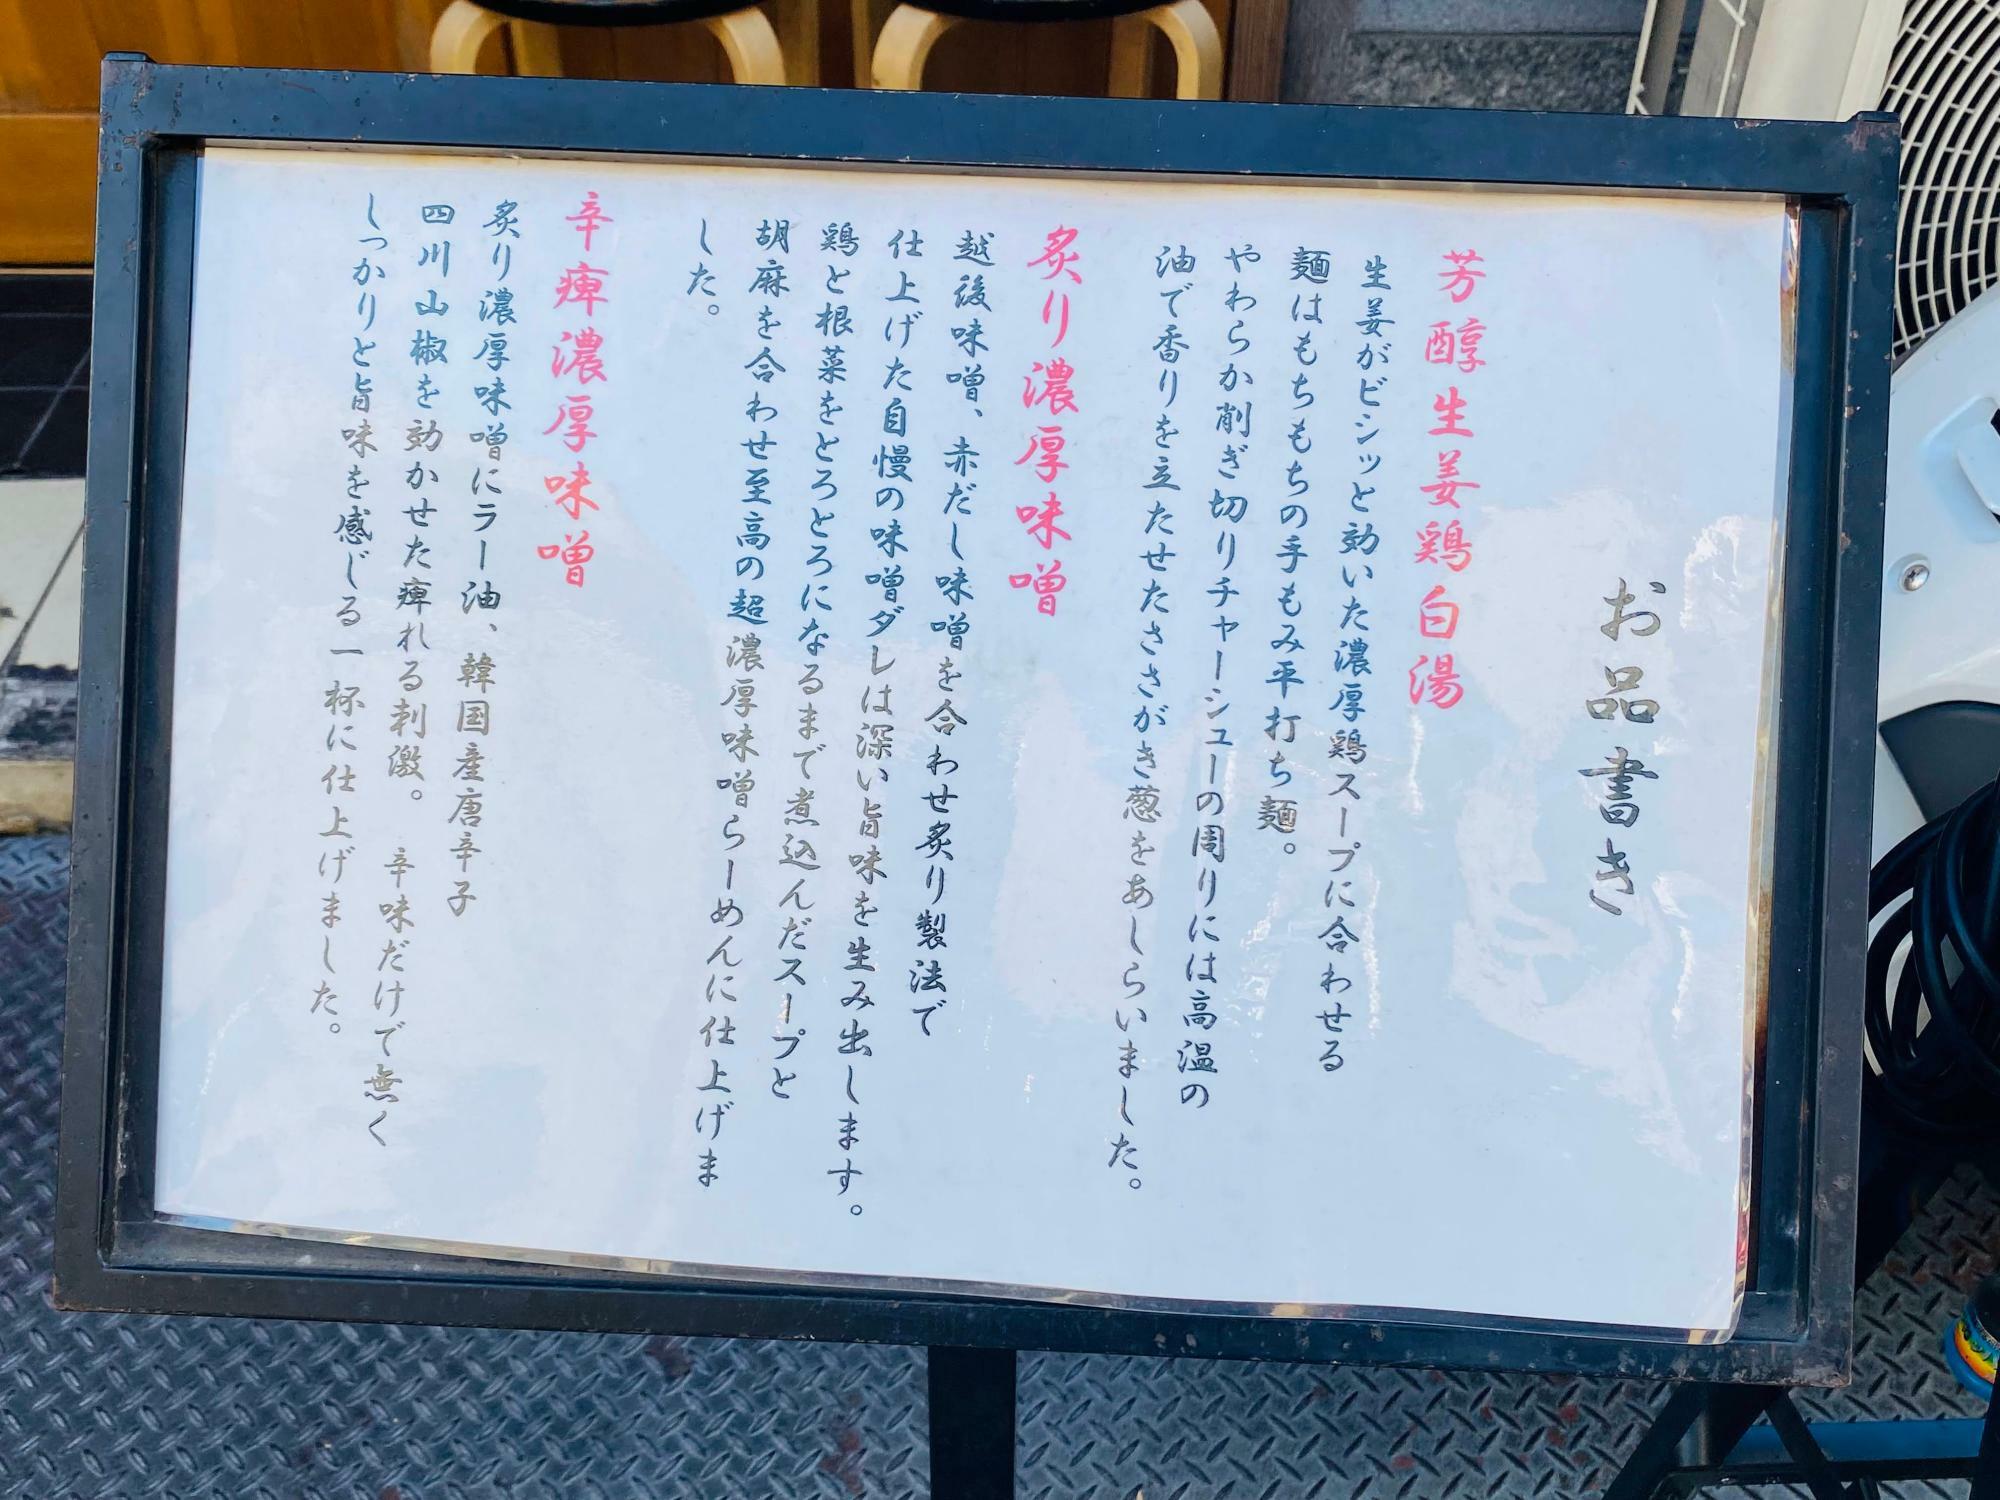 お品書き
芳醇生姜鶏白湯
生姜がビシッと効いた濃厚鶏スープに合わせる
麺はもちもちの手もみ平打ち麺。
やわらか削ぎ切りチャーシューの周りには高温の
油で香りを立たせたささがき葱をあしらいました。
炙り濃厚味噌
越後味噌、赤だし味噌を合わせ炙り製法で
仕上げた自慢の味噌ダレは深い旨味を生み出します。
鶏と根菜をとろとろになるまで煮込んだスープと
胡麻を合わせ至高の超濃厚味噌らーめんに仕上げま
した。
辛痺濃厚味噌
炙り濃厚味噌にラー油、韓国産唐辛子
四川山椒を効かせた痺れる刺激。 辛味だけで無く
しっかりと旨味を感じる一杯に仕上げました。